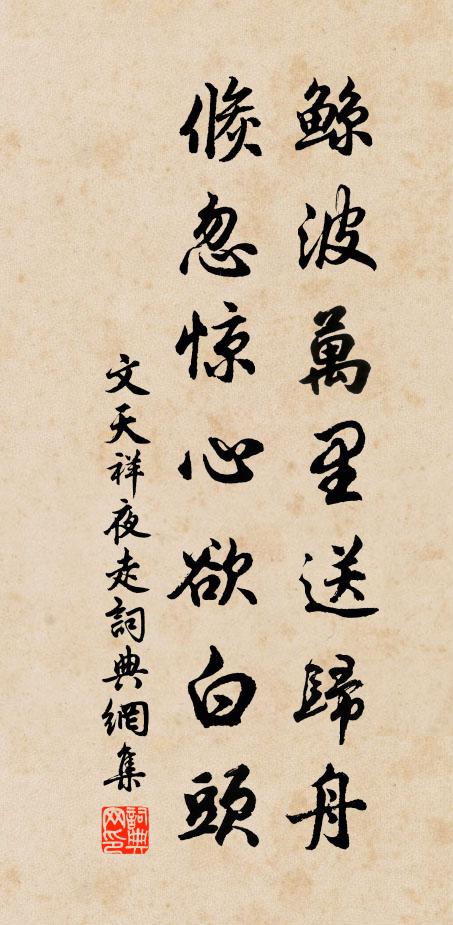 鲸波萬里送歸舟
倏忽惊心欲白頭
文天祥夜走詞典網集
詞典网印